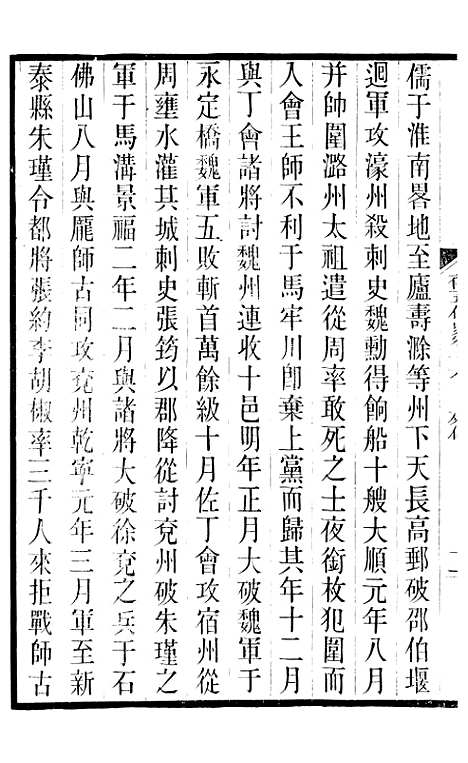 儒于淮南畧地至廬壽滁等州下天長高郵破邵伯堰
迴軍攻濠州殺刺史魏勳得餉船十艘大順元年八月
并帥圍潞州太祖遣從周率敢死之士夜銜枚犯圍而
入會王師不利于馬牢川卽棄上黨而歸其年十二月
與丁會諸將討魏州連收十邑明年正月大破魏軍于
永定橋魏軍五敗斬首萬餘級十月佐丁會攻宿州從
周壅水灌其城刺史張筠以郡降從討兗州破朱瑾之
軍于馬溝景福二年二月與諸將大破徐兗之兵于石
佛山八月與龐師古同攻兗州乾寧元年三月軍至新
泰縣朱瑾令都將張約李胡椒率三千人來拒戰師古